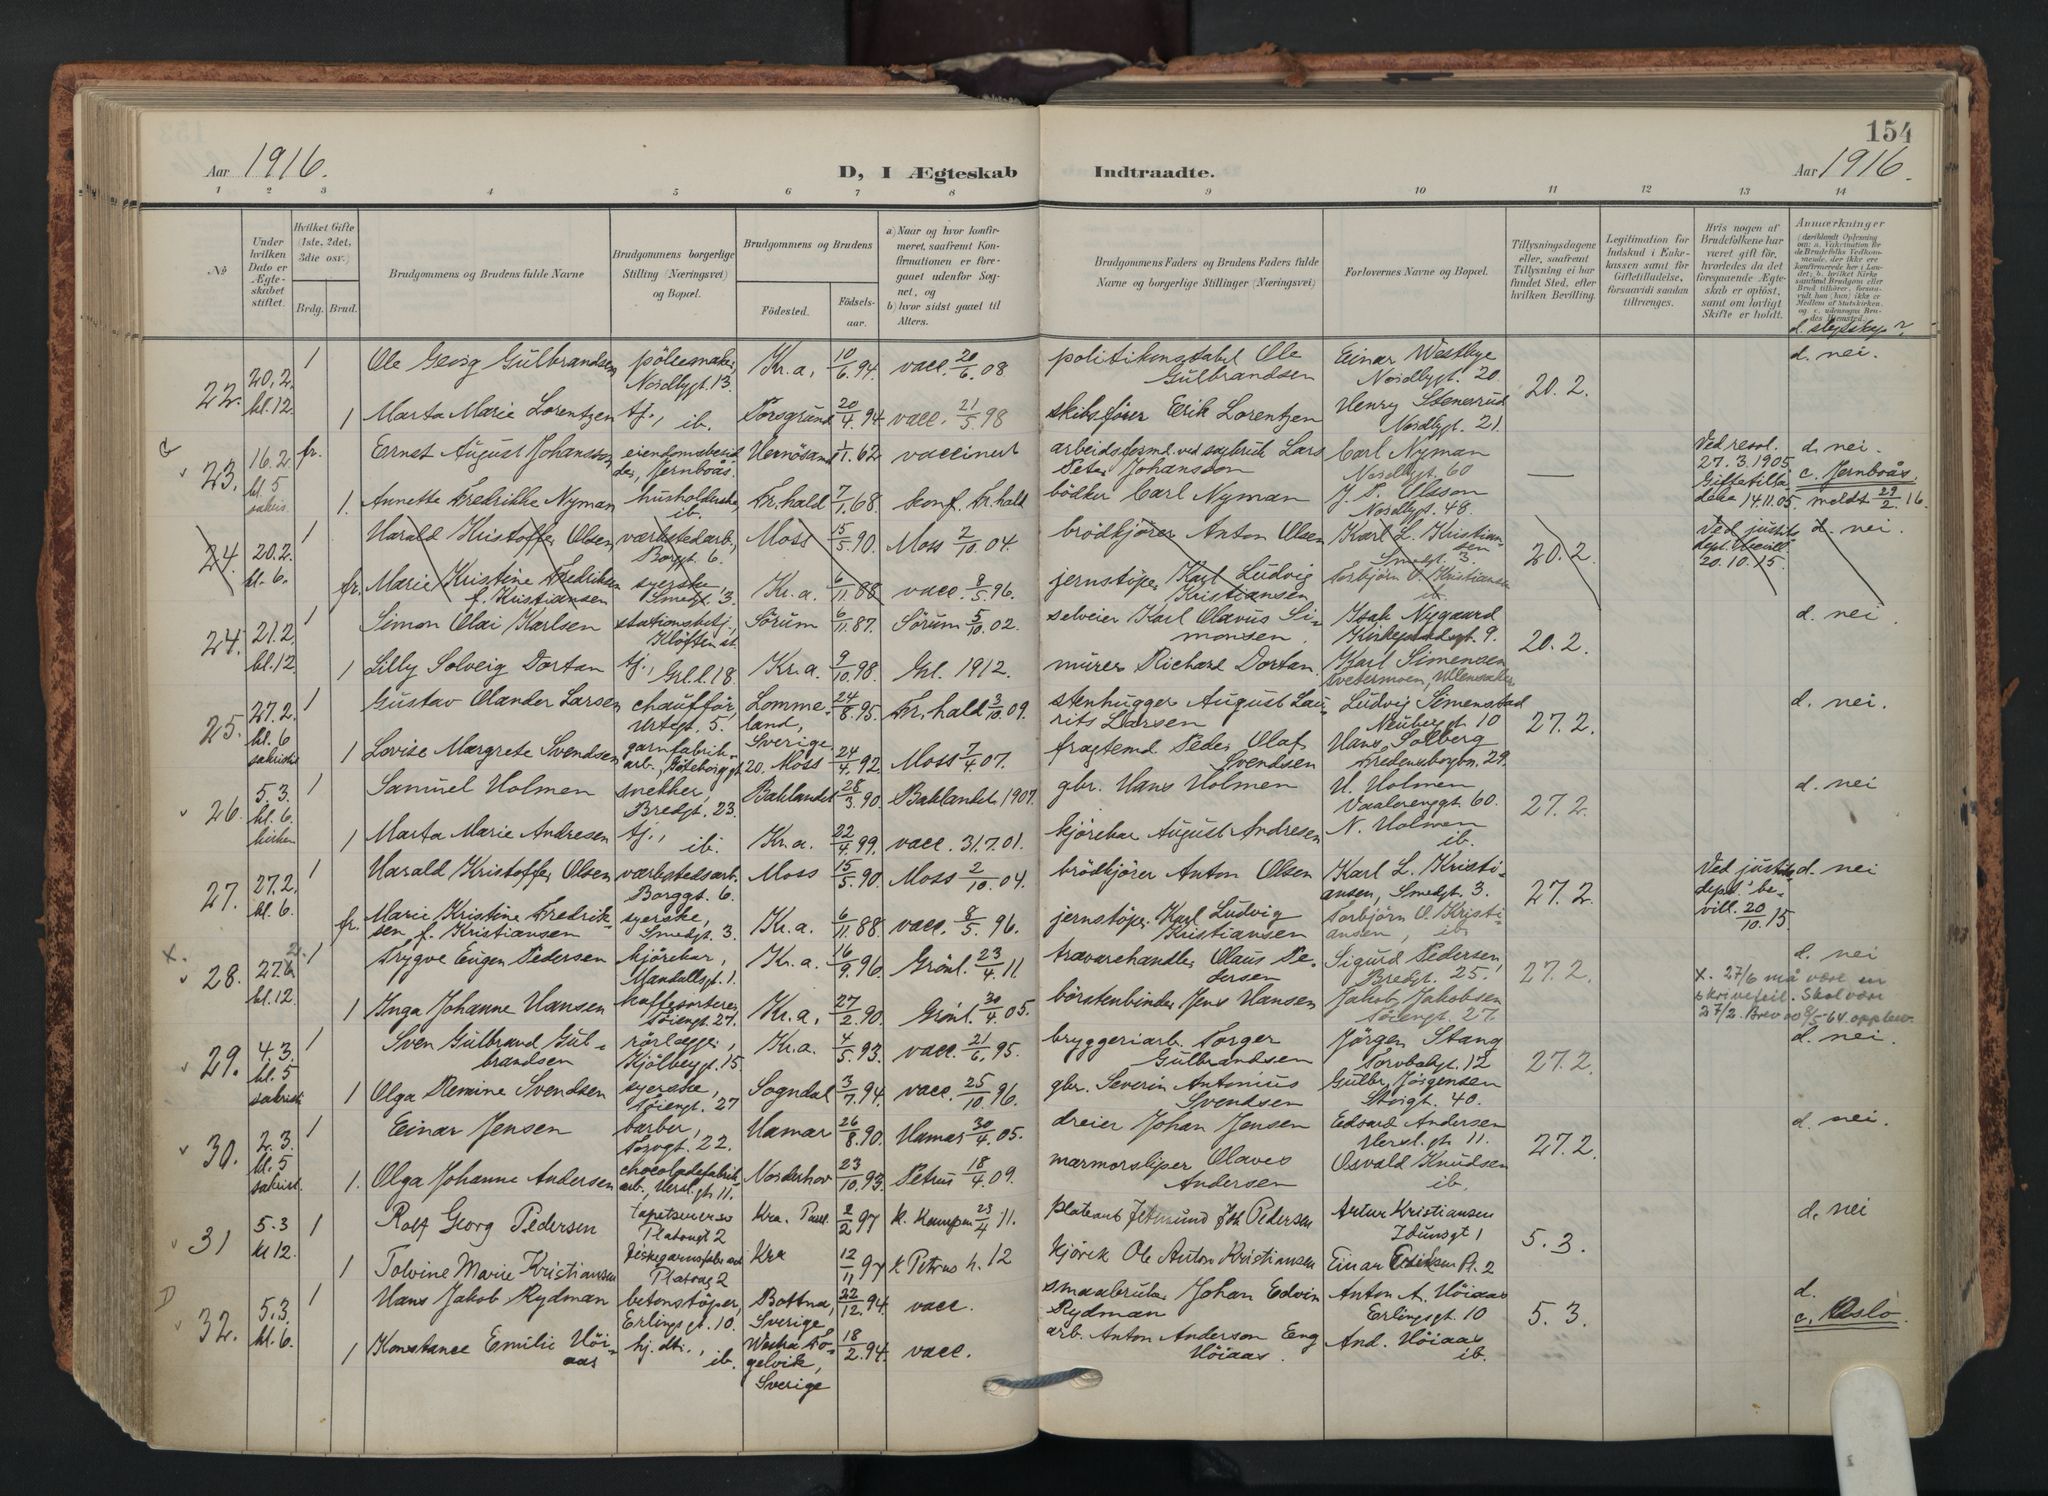 154
Aar 1916.
D, I Ægteskab Indtraadte.
Aar 1916.
1 2 3 4 5 6 7 8 9 10 11 12 13 14
№
Under hvilken Dato er Ægteskabet stiftet.
Hvilket Gifte (1ste, 2det, 3die osv.)
Brdg. Brud.
Brudgommens og Brudens fulde Navne
Brudgommens borgerlige Stilling (Næringsvei) og Bopæl.
Brudgommens og Brudens
Födested. Födselsaar.
a) Naar og hvor konfirmeret, saafremt Konfirmationen er foregaaet udenfor Sognet, og
b) hvor sidst gaaet til Alters.
Brudgommens Faders og Brudens Faders fulde Navne og borgerlige Stillinger (Næringsvei)
Forlovernes Navne og Bopæl.
Tillysningsdagene eller, saafremt Tillysning ei har fundet Sted, efter hvilken Bevilling.
Legitimation for Indskud i Enkekassen samt for Giftetilladelse, forsaavidt saadan tiltrænges.
Hvis nogen af Brudefolkene har været gift för, hvorledes da det foregaaende Ægteskab er oplöst, samt om lovligt Skifte er holdt.
Anmærkninger
d. slegtskap?
22. 20.2. kl. 12 1 Ole Georg Gulbrandsen Nordbygt. 13. Kr.a. 10/6 94 vacc. 20/6 08 politikonstabel Ole Gulbrandsen Einar Westbye Nordbygt. 20. 20.2. d. nei.
1 Marta Marie Lorentzen tj., ib. Porsgrund 20/4 94 vacc. 21/5 98 skibsfører Erik Lorentzen Henry Stenersrud Nordbygt. 21.
23. 16.2. kl. 5 fr. Ernst August Johansson Hernösand 1/11 62 vaccinert arbeidsformd. ved sagbruk Lars Peter Johansson Carl Nyman Nordbygt. 60 — Ved resol. 27.3.1905 14.11.05. d. nei. c. Jernboås meldt 29/2 16.
1. Annette Fredrikke Nyman ib. Fr.hald 7/1 68 konf. Fr.hald bödker Carl Nyman Olsson Nordbygt. 48.
24. 20.2. kl. 6. 1 Harald Kristoffer Olsen værkstedarb., Borggt. 6. Moss 15/5 90. Moss 2/10 04. brödkjører Anton Olsen Karl L. Kristiansen Smedgt. 3. 20.2. Ved justits dept. bevill. 20.10.15. d. nei.
fr. Marie Kristine Fredriksen f. Kristiansen syerske, Smedgt. 3. Kr.a. 6/11 88 vacc. 8/5 96. jernstöper Karl Ludvig Kristiansen Torbjörn O. Kristiansen ib.
24. 21.2. kl. 12 1 Simon Olai Karlsen stationsbetj. Klöften st. Sörum 6/11 87. Sörum 5/10 02. selveier Karl Olavus Simonsen. Isak Nygaard 20.2. d. nei
1 Lilly Solveig Dortan tj., Grl.l. 18 Kr.a. 9/10 98. Grl. 1912. murer Richard Dortan Karl Simensen Ullensaker
25. 27.2. kl. 6 sakristi 1 Gustav Olander Larsen chaufför, Urtegt. 5. Lommeland, Sverige. 24/8 95. Fr.hald 3/10 09. stenhugger August Laurits Larsen Ludvig Simenstad Neubergt 10 27.2. d. nei.
1 Lovise Margrete Svendsen garnfabrikarb., Göteborggt. 20. Moss 24/4 92. Moss 7/4 07. fragtemd. Peder Olaf Svendsen Hans Solberg Fredensborgvn. 29.
26. 5.3. kl. 6 kirken 1 Samuel Holmen snekker, Bredgt. 23. Baklandet 28/3 90. Baklandet 1907. gbr. Hans Holmen H. Holmen Vaalerenggt. 60. 27.2. d. nei
1 Marta Marie Andresen tj., ib. Kr.a. 22/4 99. vacc. 31.7.01. kjörekar August Andresen N. Holmen ib.
27. 27.2. kl. 6. 1 Harald Kristoffer Olsen værkstedsarb. Borggt. 6. Moss 15/5 90. Moss 2/10 04. brödkjörer Anton Olsen Karl L. Kristiansen, Smedgt. 3. 27.2. Ved justits depts bevill. 20/10 15. d. nei
fr. Marie Kristine Fredriksen f. Kristiansen syerske, Smedgt. 3. Kr.a. 6/11 88. vacc. 8/5 96. jernstöper Karl Ludvig Kristiansen Torbjörn O. Kristiansen, ib.
x. 28. 27.6 2. kl. 12 1 Trygve Eugen Pedersen kjörekar, Mandallsgt. 1. Kr.a. 16/9 96. Grönl. 23/4 11 trævarehandler Olaus Pedersen Sigurd Pedersen, Bredgt. 25. 27.2. d. nei
x. 27/6 må være en skrivefeil. Skal være 27/2. Brev
1 Inga Johanne Hansen kaffesorterer, Töiengt. 27. Kr.a. 27/2 90. Grönl. 30/4 05. börstenbinder Jens Hansen Jakob Jakobsen Töiengt. 27.
29. 4.3. kl. 5 sakristi 1 Sven Gulbrand Gulbrandsen rörlægger, Kjölbergt. 15 Kr.a. 4/5 93. vacc. 21/6 95. bryggeriarb. Torger Gulbrandsen Jörgen Stang Torvbakgt. 12 27.2. d. nei.
1 Olga Remine Svendsen syerske, Töiengt. 27 Sogndal 3/7 94. vacc. 25/10 96. gbr. Severin Antonius Svendsen Gulbr. Jörgensen Storgt. 40.
30. 2.3. kl. 5 sakrist. 1 Einar Jensen barber, Torvgt. 22. Hamar 26/8 90. Hamar 30/4 05. dreier Johan Jensen Edvard Andersen Herslgt. 11. 27.2. d. nei.
1. Olga Johanne Andersen chocoladefabrikarb., Herslgt. 11. Norderhov 23/10 93. Petrus 18/4 09. marmorsliper Olaves Andersen Osvald Knudsen ib.
31 5.3 kl 12. 1 Rolf Georg Pedersen Platougt 2 Kra. 2/2 97 k. Kampen 23/4 11. Joh Pedersen Artur Kristiansen Idunsgt 1 5.3. d. nei
1 Tolvine Marie Kristiansen Platoug 2 Kra 12/11 97 k Petrus h. 12 kjörek Ole Anton Kristiansen Einar Eriksen Pl. 2
32. 5.3. kl. 6. 1 Hans Jakob Rydman betonstöper, Erlingsgt. 10. Bottna, Sverige 22/12 94. vacc. smaabruker Johan Edvin Rydman Anton A. Höiaas Erlingsgt. 10 5.3. d. c. Oslo.
1 Konstance Emilie Höiaas hj. dtr., ib. Sverige 18/2 94. vacc. arb. Anton Anderson Eng Höiaas. And. Höiaas ib.